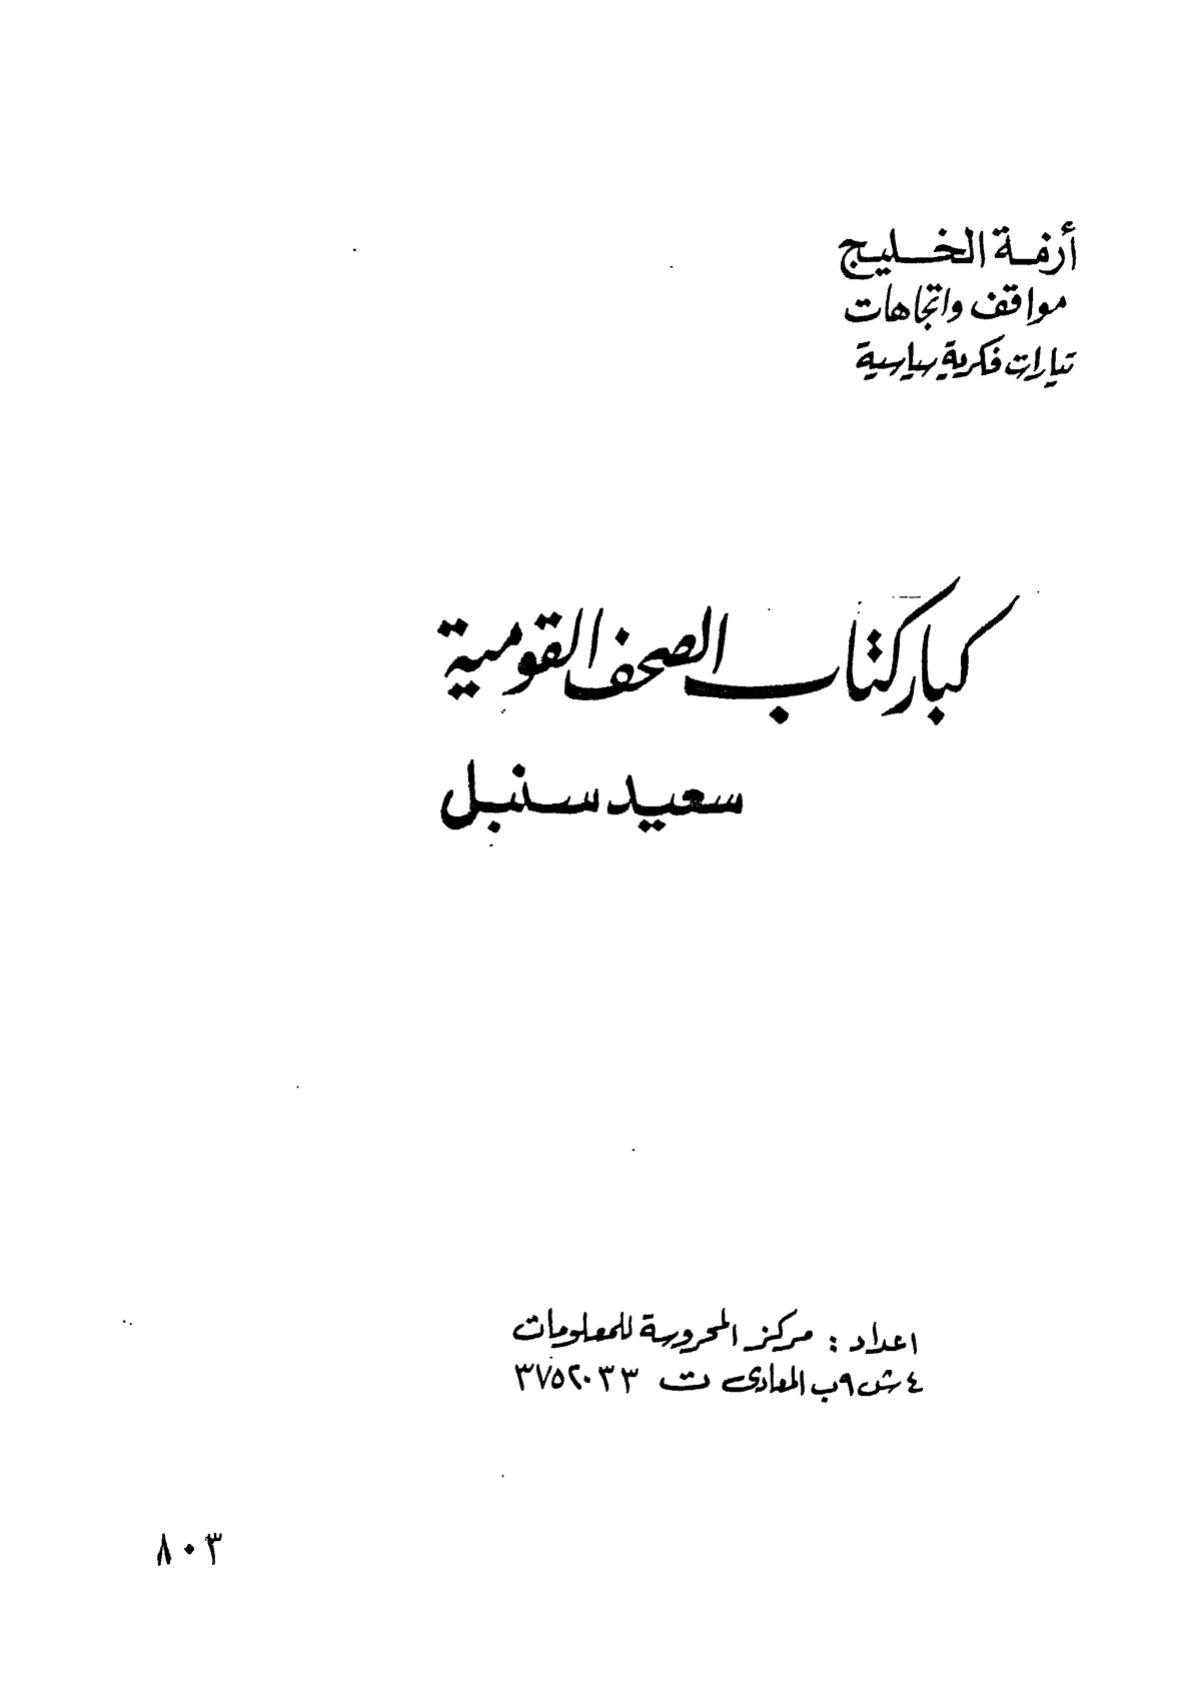 أزمة الخليج
مواقف واتجاهات
تيارات فكرية سياسية
كبار كتاب الصحف القومية
سعيد سنبل
اعداد : مركز المحروسة للمعلومات
٤ ش ٩ب المعادى ت ٣٧٥٢٠٣٣
٨٠٣